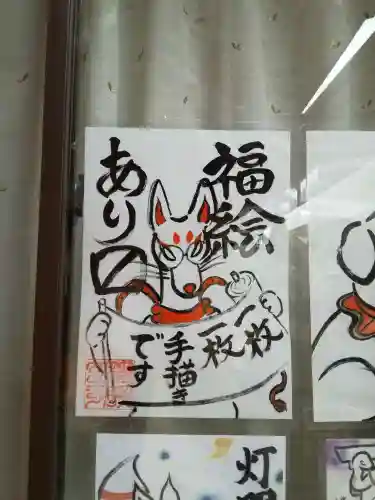 福絵
あり〼
一枚
一枚
手描き
です
灯明